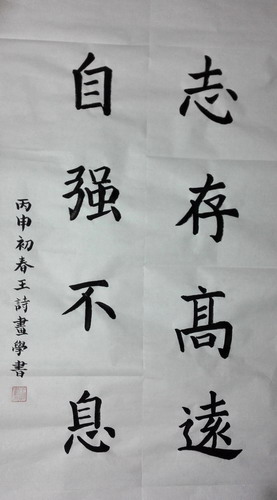 志存髙遠
自强不息
丙申初春王詩畫學書